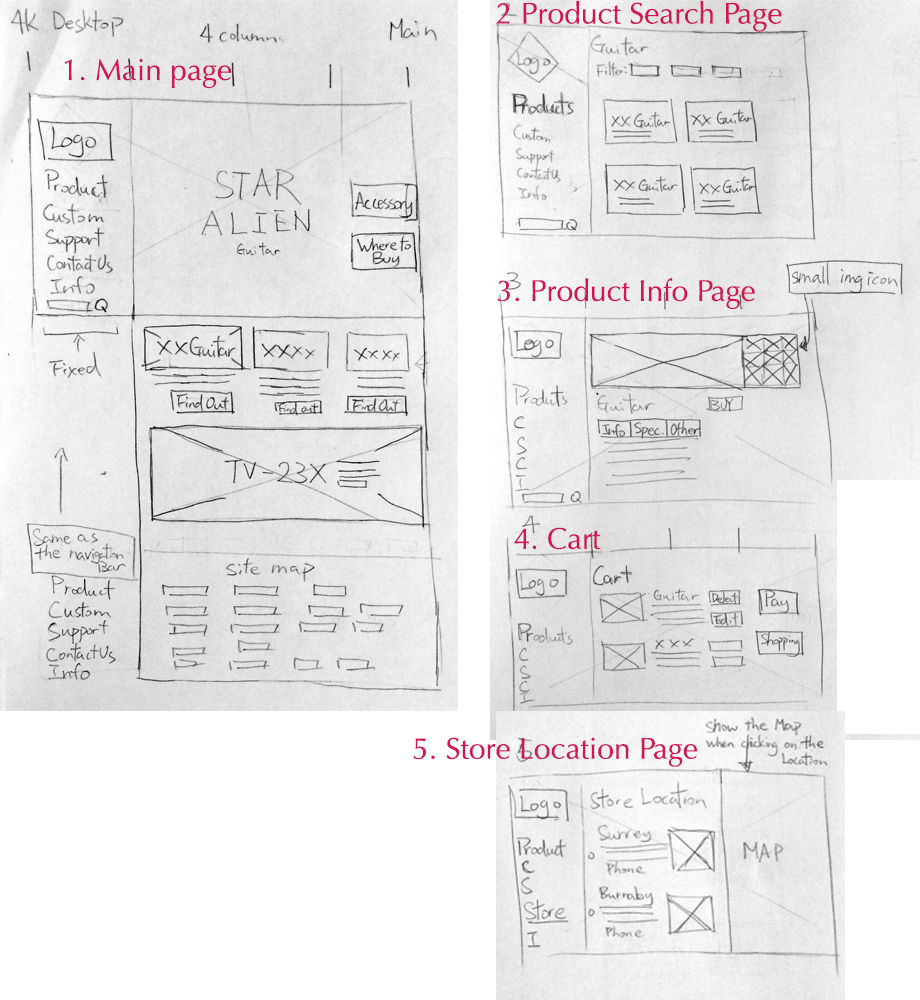 4K Desktop
4 column
Main
1. Main page
Logo
Product
Custom
Support
Contact Us
Info
Q
Fixed
STAR
ALIEN
Guitar
Accessory
Where to
Buy
XX Guitar
XXXX
XXXX
Find Out
Find out
Find Out
TV-23X
Same as
the navigation
Bar
Product
Custom
Support
Contact Us
Info
site map
2 Product Search Page
Logo
Products
Custom
Support
Contact Us
Info
Q
Guitar
Filter:
XX Guitar
XX Guitar
XX Guitar
XX Guitar
3
3. Product Info Page
small img icon
Logo
Produts
C
S
C
I
Q
Guitar
BUY
Info Spec. Other
4
4. Cart
Logo
Products
C
S
C
I
Cart
Guitar
Delect
Edit
XXX
Pay
Shopping
5. Store Location Page
show the Map
when clicking on the
Location
Logo
Product
C
S
Store
I
Store Location
Surrey
Phone
Burnaby
Phone
MAP